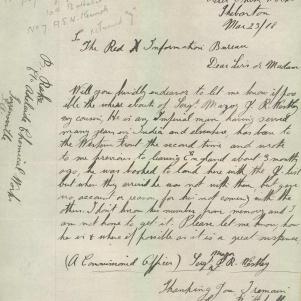 Thebarton
Mar 23/18
To
The Red X Information Bureau
Dear Sirs or Madam
Will you kindly endeavor to let me know if possi
ble the where abouts of Sergt Major J. R. Westley
my cousin, He is an Imperial man, having served
many years in India and elsewhere, has been to
the Western front the second time and wrote
to me previous to leaving England about 3 months
ago, he was booked to land here with the
but when they arrived he was not with them, but gave
no account or reason for his not coming with the
others. I don't know his number from memory and I
am not home to get it. Please let me know, how
he is & where if possible as it is a great suspence,
(A Commissioned Officer) Sergt Major J. R. Westley
Thanking You I remain
P.
C/o Adelaide Chemical Works